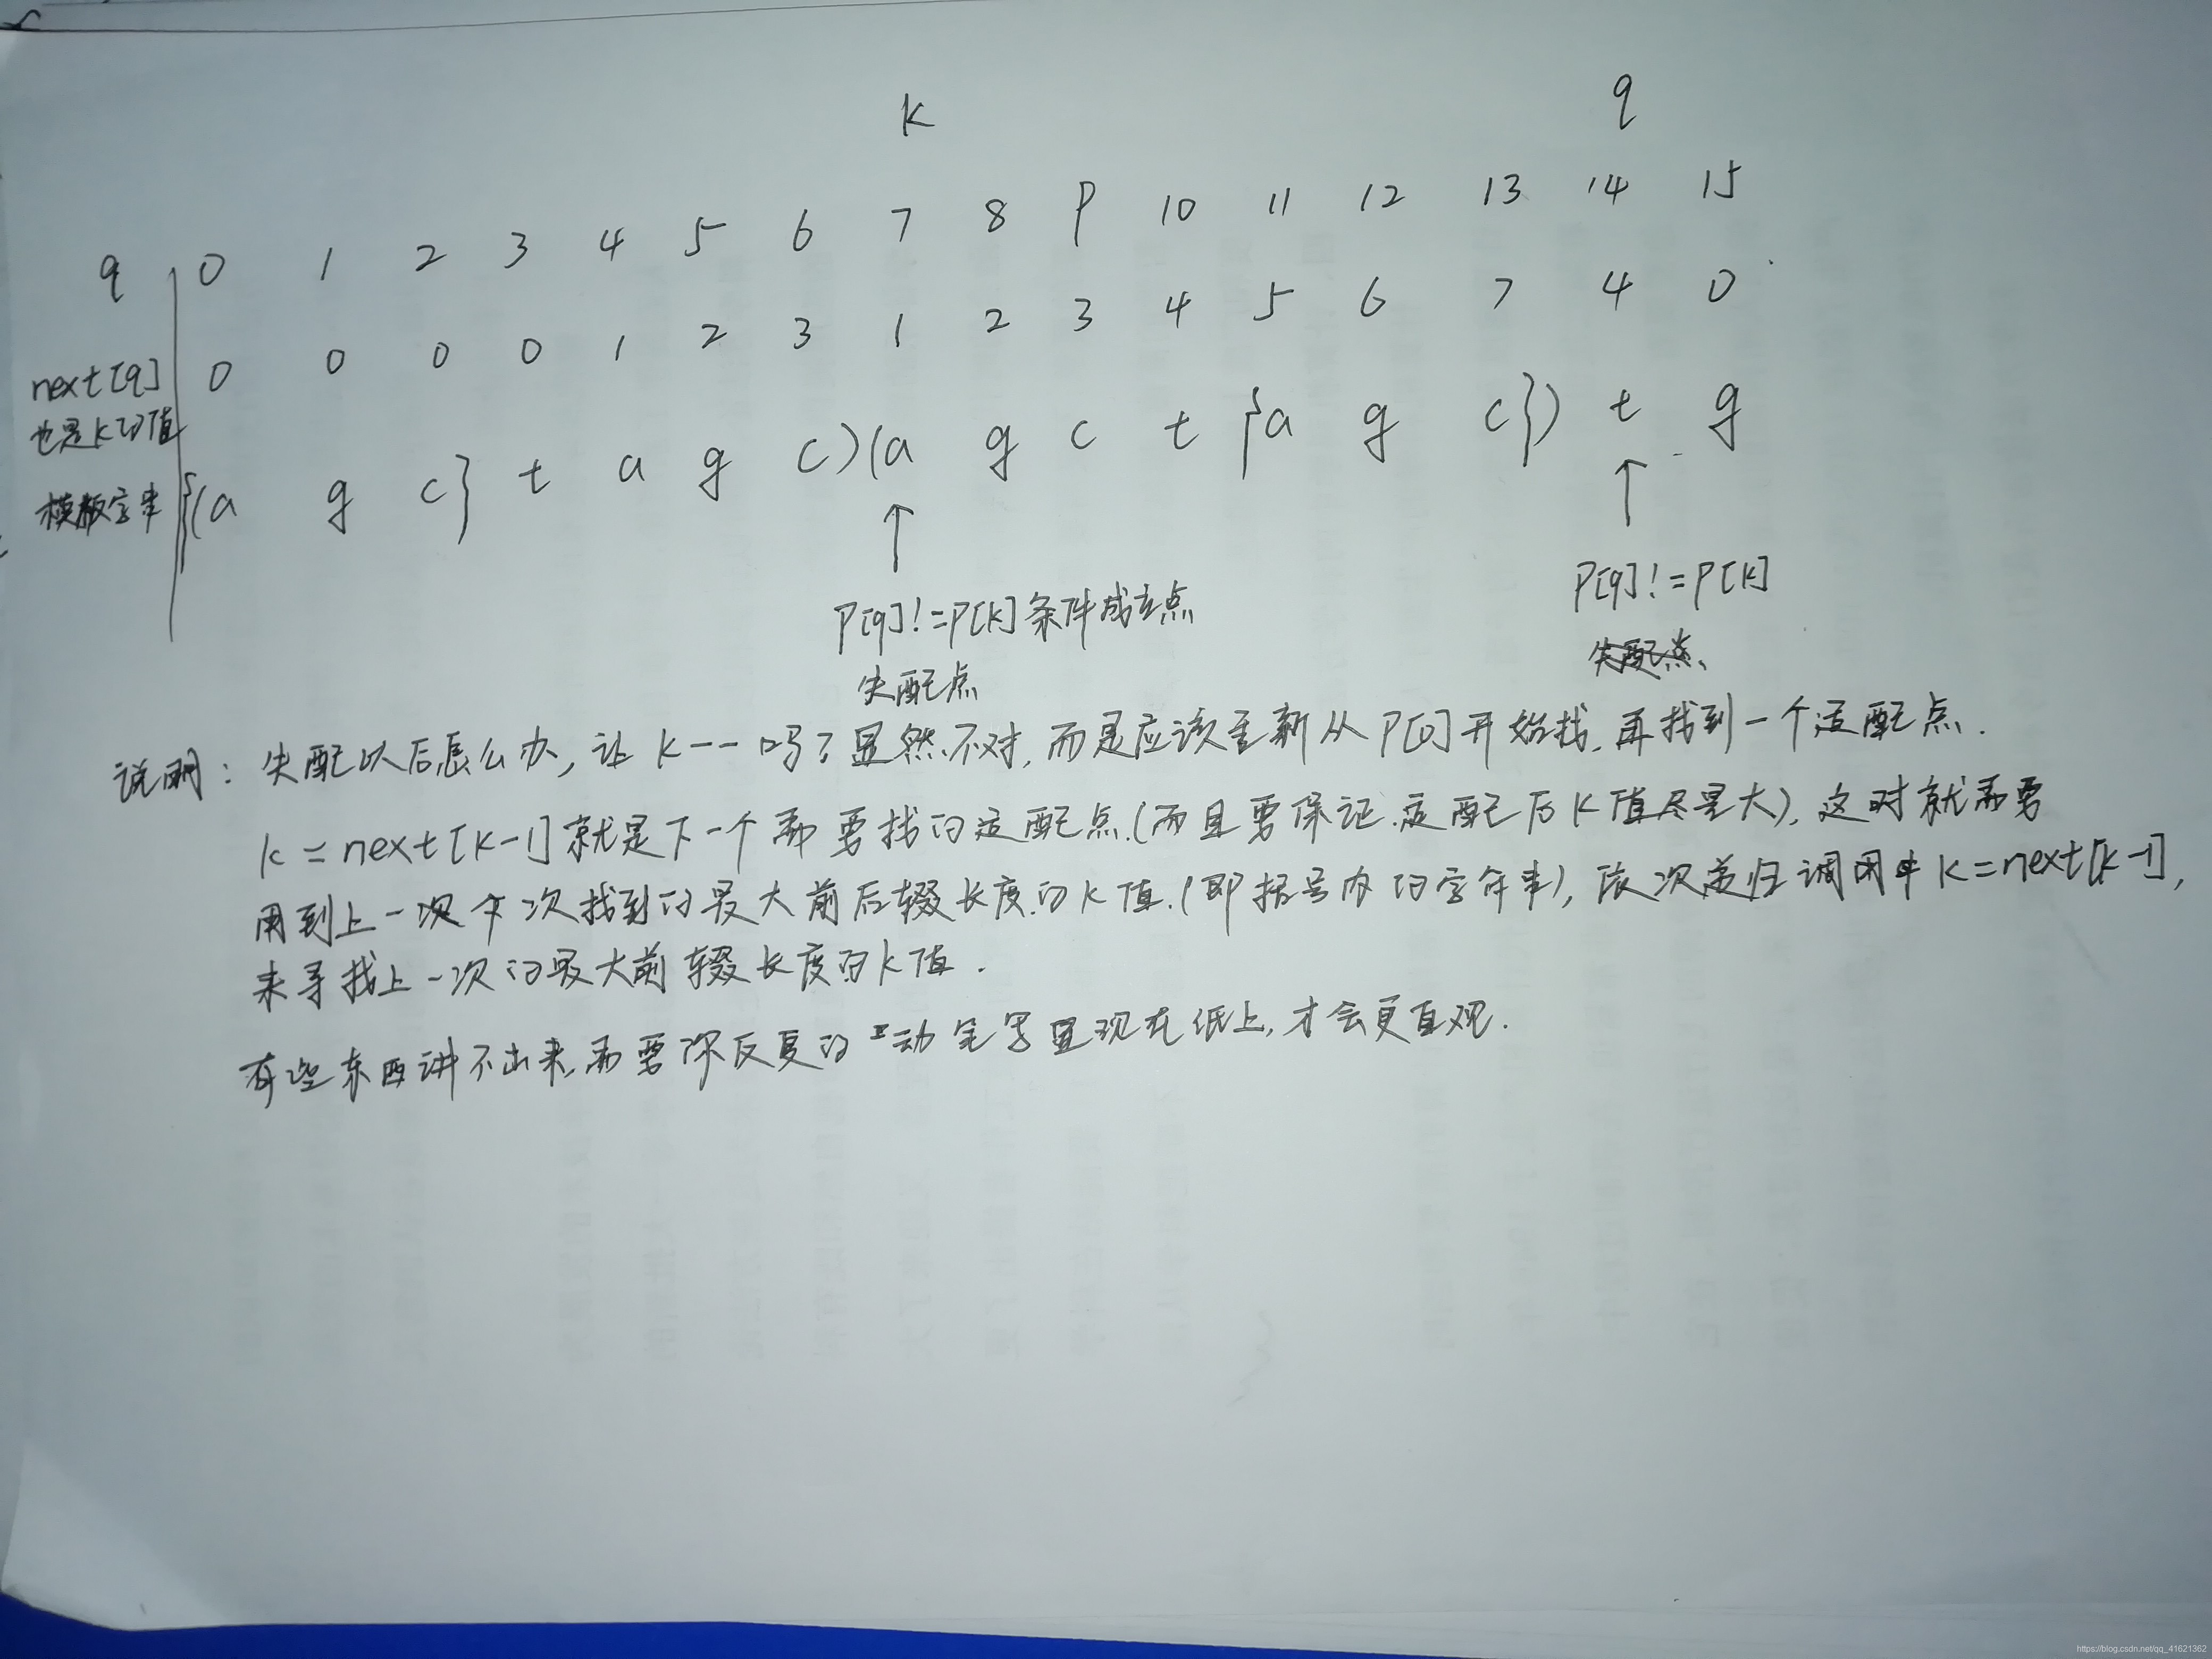 k q
q 0 1 2 3 4 5 6 7 8 9 10 11 12 13 14 15
next[q] 0 0 0 0 1 2 3 1 2 3 4 5 6 7 4 0
也是k的值
模板字串 {(a g c} t a g c)(a g c t {a g c}) t g
P[q]!=P[k]条件成立点
失配点
P[q]!=P[k]
失配点
说明：失配以后怎么办，让k--吗？显然不对，而是应该重新从P[0]开始找，再找到一个适配点.
k=next[k-1]就是下一个需要找的适配点.(而且要保证.适配后k值尽量大)，这时就需要
用到上一次本次找到的最大前后缀长度.的k值.(即括号内的字符串)，依次递归调用 k=next[k-1],
来寻找上一次的最大前缀长度的k值.
有些东西讲不出来，需要你反复的动笔写呈现在纸上，才会更直观.
https://blog.csdn.net/qq_41621362